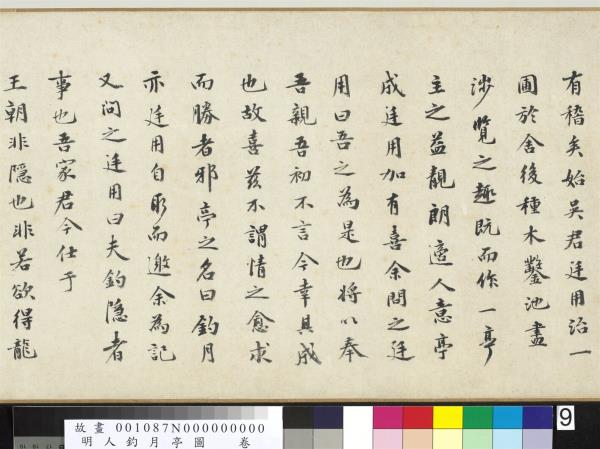 有稽矣始吳君廷用治一
圃於舍後種木鑿池盡
涉覽之趣既而作一亭
主之益靚朗適人意亭
成廷用加有喜余問之廷
用曰吾之為是也將以奉
吾親吾初不言今幸具成
也故喜茲不謂情之愈求
而勝者邪亭之名曰釣月
亦廷用自取而邀余為記
又問之廷用曰夫釣隱者
事也吾家君今仕于
王朝非隱也非若欲得龍
故畫 001087N000000000
明人釣月亭圖 卷
9